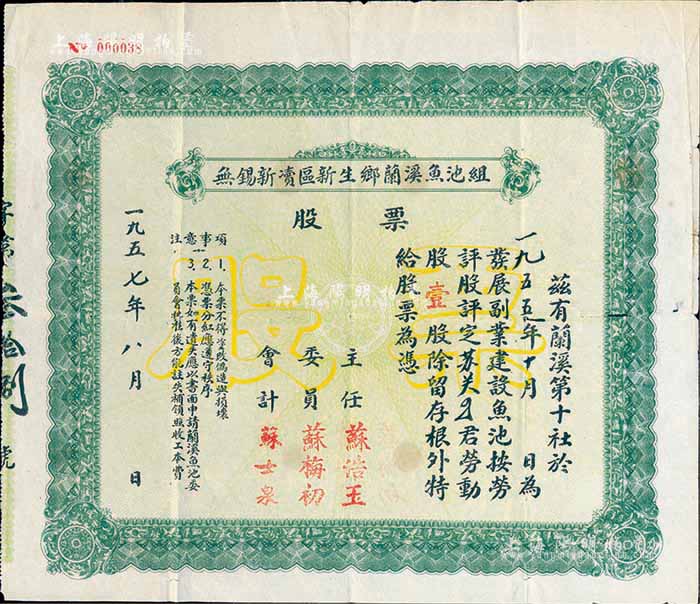 No 000038
無錫新瀆區新生鄉蘭溪魚池組
股票
茲有蘭溪第十社於
一九五五年十月 日為
發展副業建設魚池按勞
評股評定苏关2君勞動
股壹股除留存根外特
給股票為憑
主任 蘇浩玉
委員 蘇梅初
會計 蘇士泉
注意事項
1、本票不得塗改偽造與損壞
2、憑票分紅應遵守秩序
3、本票如有遺失應以書面申請蘭溪魚池委
員會批准後方能註失補領照收工本費
一九五七年八月 日
字第 叁拾捌 號
股票
上海陽明拍卖
上海陽明拍卖
上海陽明拍卖